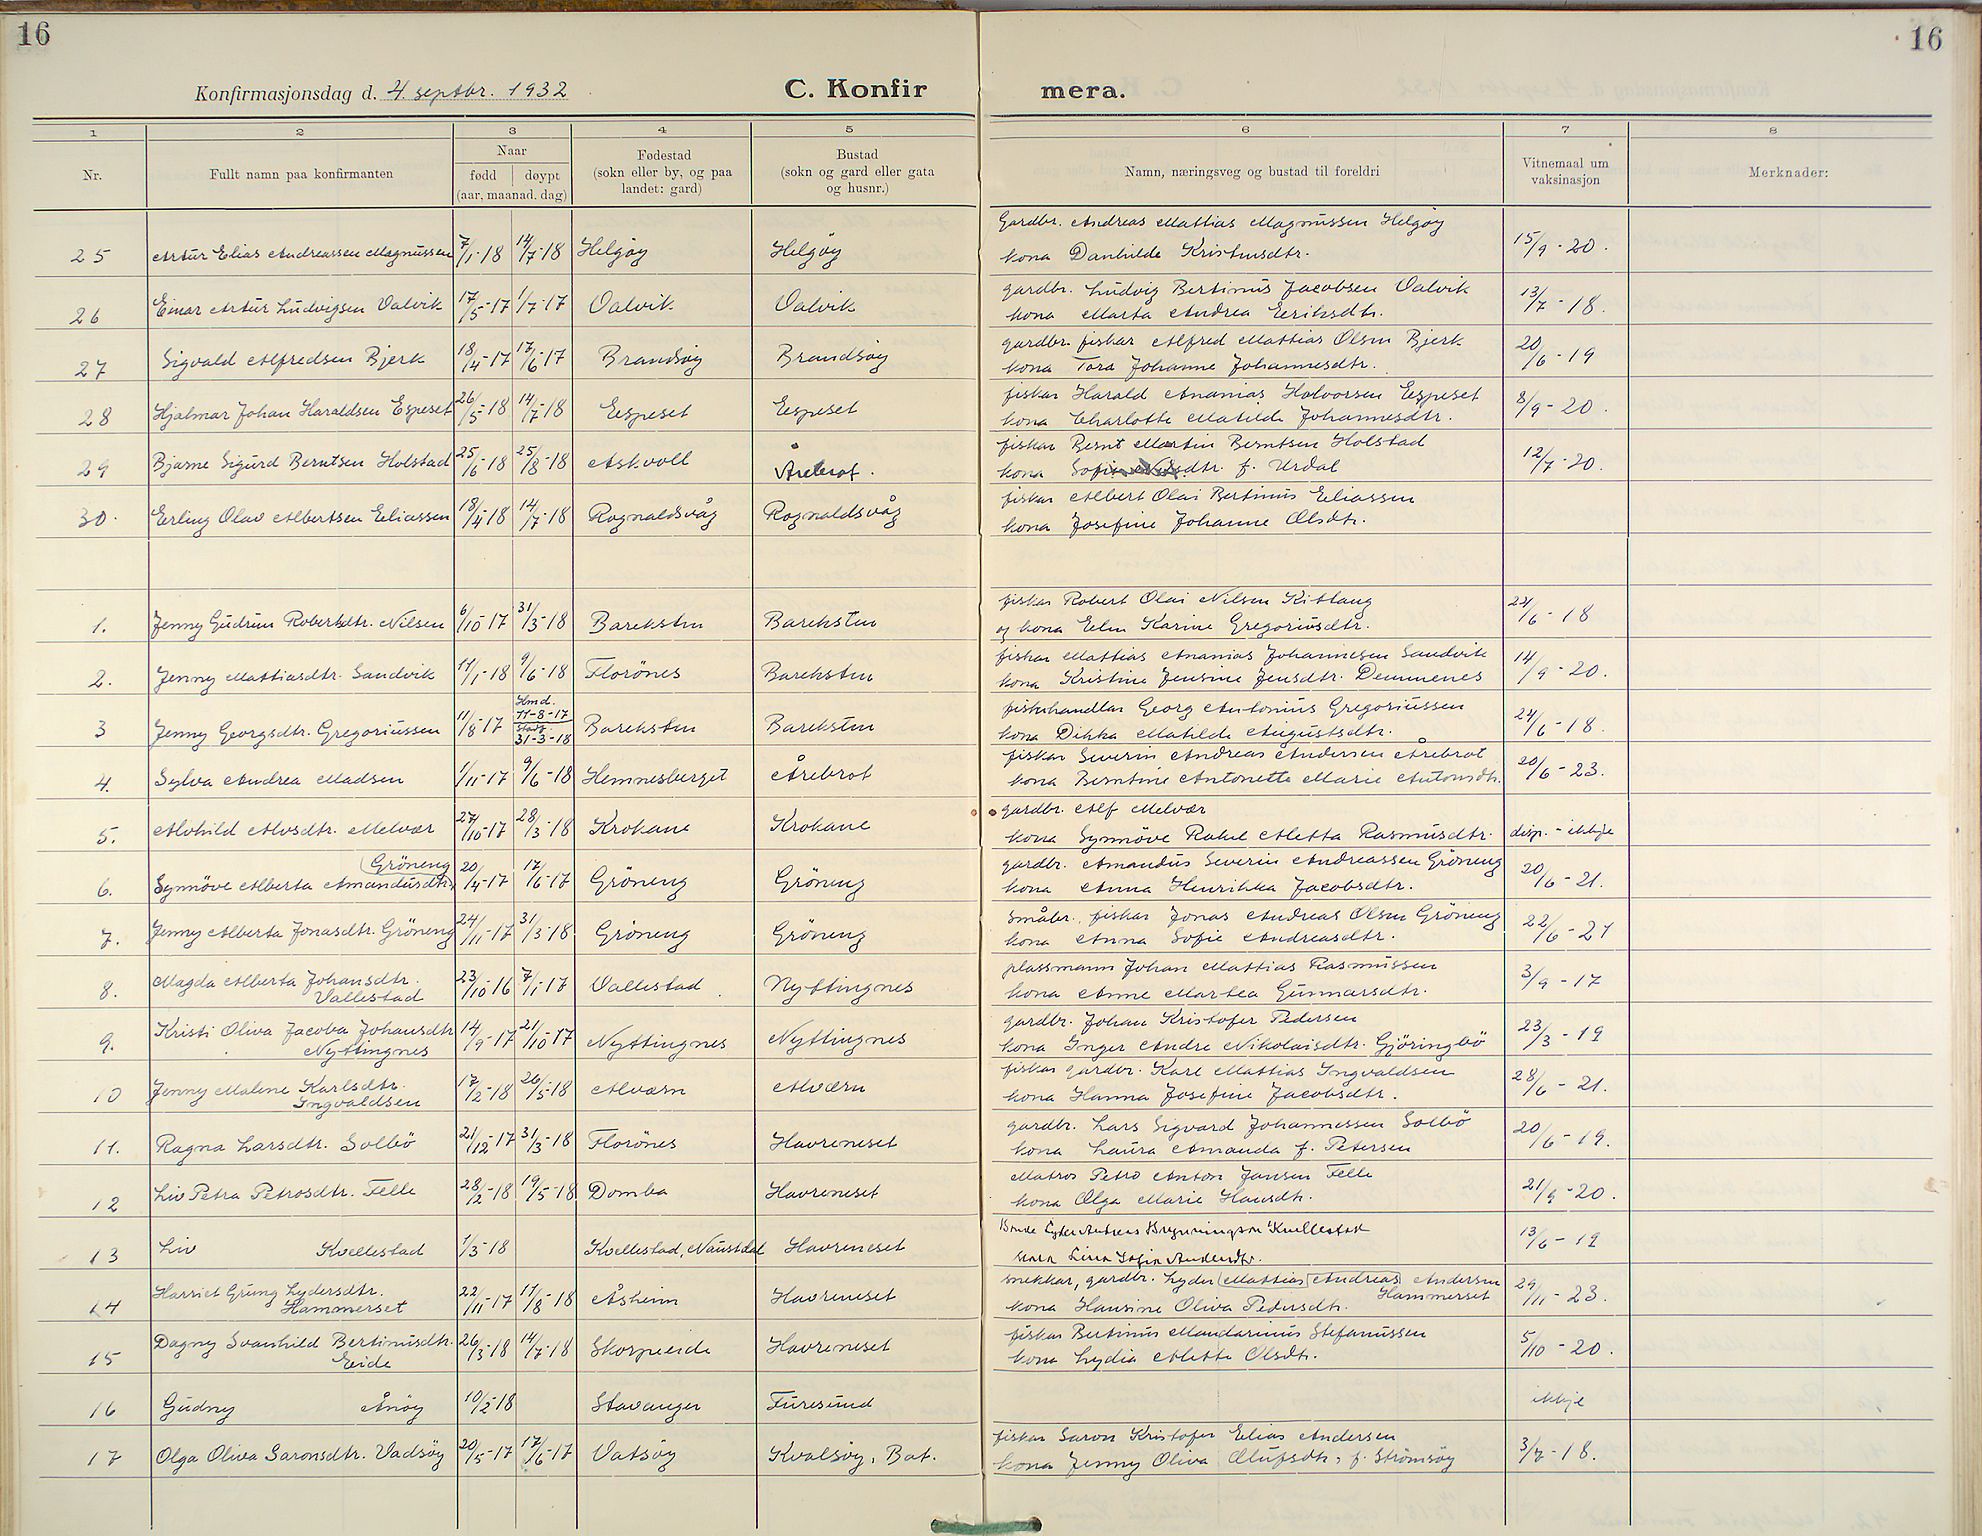 16
16
Konfirmasjonsdag d. 4. septbr. 1932
C. Konfir mera.
1 2 3 4 5 6 7 8
Nr.
Fullt namn paa konfirmanten
Naar
fødd døypt
(aar, maanad. dag)
Fødestad
(sokn eller by, og paa
landet: gard)
Bustad
(sokn og gard eller gata
og husnr.)
Namn, næringsveg og bustad til foreldri
Vitnemaal um
vaksinasjon
Merknader:
Gardbr. Andreas Mattias Magnussen Helgøy
25 Artur Elias Andreassen Magnussen 7/1-18 14/7-18 Helgøy Helgøy kona Danhilde Kristinsdtr. 15/9-20.
gardbr. Ludvig Bertinus Jacobsen Valvik
26 Einar Artur Ludvigsen Valvik 17/5-17 1/7-17 Valvik Valvik kona Marta Andrea Eriksdtr. 13/7-18.
gardbr. fiskar Alfred Mattias Olsen Bjerk
27 Sigvald Alfredsen Bjerk 18/4-17 17/6-17 Brandsøy Brandsøy kona Tora Johanne Johannesdtr. 20/6-19
fiskar Harald Ananias Halvorsen Espeset
28 Hjalmar Johan Haraldsen Espeset 26/5-18 14/7-18 Espeset Espeset kona Charlotte Matilde Johannesdtr. 8/9-20.
fiskar Bernt Martin Berntsen Holstad
29 Bjarne Sigurd Berntsen Holstad 25/6-18 25/8-18 Askvoll Årebrot. kona Sofie Nilsdtr. f. Urdal 12/7-20.
fiskar Albert Olai Bertinus Eliassen
30. Erling Olav Albertsen Eliassen 18/4-18 14/7-18 Rognaldsvåg Rognaldsvåg kona Josefine Johanne Olsdtr.
fiskar Robert Olai Nilsen Kittang
1. Jenny Gudrun Robertsdtr. Nilsen 6/10-17 31/3-18 Bareksten Bareksten og kona Elen Karine Gregoriusdtr. 24/6-18
fiskar Mattias Ananias Johannesen Sandvik
2. Jenny Mattiasdtr. Sandvik 11/1-18 9/6-18 Florönes Bareksten kona Kristine Jensine Jensdtr. Demmenes 14/9-20.
Hmd. 11-8-17 fiskehandlar Georg Antonius Gregoriussen
3 Jenny Georgsdtr. Gregoriussen 11/8-17 Stadf. 31-3-18 Bareksten Bareksten kona Dikka Matilde Augustsdtr. 24/6-18.
fiskar Severin Andreas Andersen Årebrot
4. Sylva Andrea Madsen 1/11-17 9/6-18 Hemnesberget Årebrot kona Berntine Antonette Marie Antonsdtr. 20/6-23.
gardbr. Alf Melvær
5. Alvhild Alvsdtr. Melvær 27/10-17 28/3-18 Krokane Krokane kona Synnöve Rakel Aletta Rasmusdtr. disp. - ikkje
Gröneng gardbr. Amandus Severin Andreassen Gröneng
6. Synnöve Alberta Amandusdtr. 20/4-17 17/6-17 Gröneng Gröneng kona Anna Henrikka Jacobsdtr. 20/6-21.
småbr. fiskar Jonas Andreas Olsen Gröneng
7. Jenny Alberta Jonasdtr. Gröneng 24/11-17 31/3-18 Gröneng Gröneng kona Anna Sofie Andreasdtr. 22/6-21
plassmann Johan Mattias Rasmussen
8. Magda Alberta Johansdtr. Vallestad 23/10-16 7/1-17 Vallestad Nyttingnes kona Anne Martea Gunnarsdtr. 3/9-17
gardbr. Johan Kristofer Pedersen
9. Kristi Oliva Jacoba Johansdtr Nyttingnes 14/9-17 21/10-17 Nyttingnes Nyttingnes kona Inger Andre Nikolaisdtr. Gjöringbö 23/3-19
fiskar gardbr. Karl Mattias Ingvaldsen
10 Jenny Malene Karlsdtr. Ingvaldsen 17/2-18 26/5-18 Alværn Alværn kona Hanna Josefine Jacobsdtr. 28/6-21.
gardbr. Lars Sigvard Johannessen Solbö
11. Ragna Larsdtr. Solbö 21/12-17 31/3-18 Florönes Havreneset kona Laura Amanda f. Petersen 20/6-19.
Matros Petro Anton Jansen Felle
12 Liv Petra Petrosdtr. Felle 28/2-18 19/5-18 Domba Havreneset kona Olga Marie Hansdtr. 21/9-20.
Bonde Kvellestad
13 Liv Kvellestad 1/3-18 Kvellestad, Naustdal Havreneset kona Lina Sofie Andersdtr. 13/6-19
snekkar, gardbr. Lyder (Mattias Andreas) Andersen
14 Harriet Grung Lydersdtr. Hammerset 22/11-17 11/8-18 Åsheim Havreneset kona Hansine Oliva Pedersdtr. Hammerset 29/11-23.
fiskar Bertinus Mandarinus Stefanussen
15 Dagny Svanhild Bertinusdtr. Eide 26/3-18 14/7-18 Skorpeeide Havreneset kona Lydia Alette Olsdtr. 5/10-20.
16 Gudny Ånöy 10/2-18 Stavanger Furesund ikkje
fiskar Saron Kristofer Elias Andersen
17 Olga Oliva Saronsdtr. Vadsöy 20/5-17 17/6-17 Vatsöy Kvalsöy, Bat. kona Jenny Oliva Olufsdtr, f. Strömsöy 3/7-18.